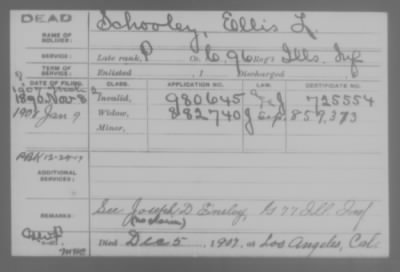 DEAD
Schooley, Ellis L
NAME OF SOLDIER:
SERVICE: Late rank, P Co. G, 96 Reg't Ills. Inf
TERM OF SERVICE: Enlisted , 1 Discharged , 1
DATE OF FILING. CLASS. APPLICATION NO. LAW. CERTIFICATE NO.
1890 Nov 8 Invalid, 980645 725554
1908 Jan 9 Widow, 882740 857,373
Minor,
ADDITIONAL SERVICES:
REMARKS: See Joseph D. 77 Ill Inf
Died Dec 5, 1907, at Los Angeles, Cal.